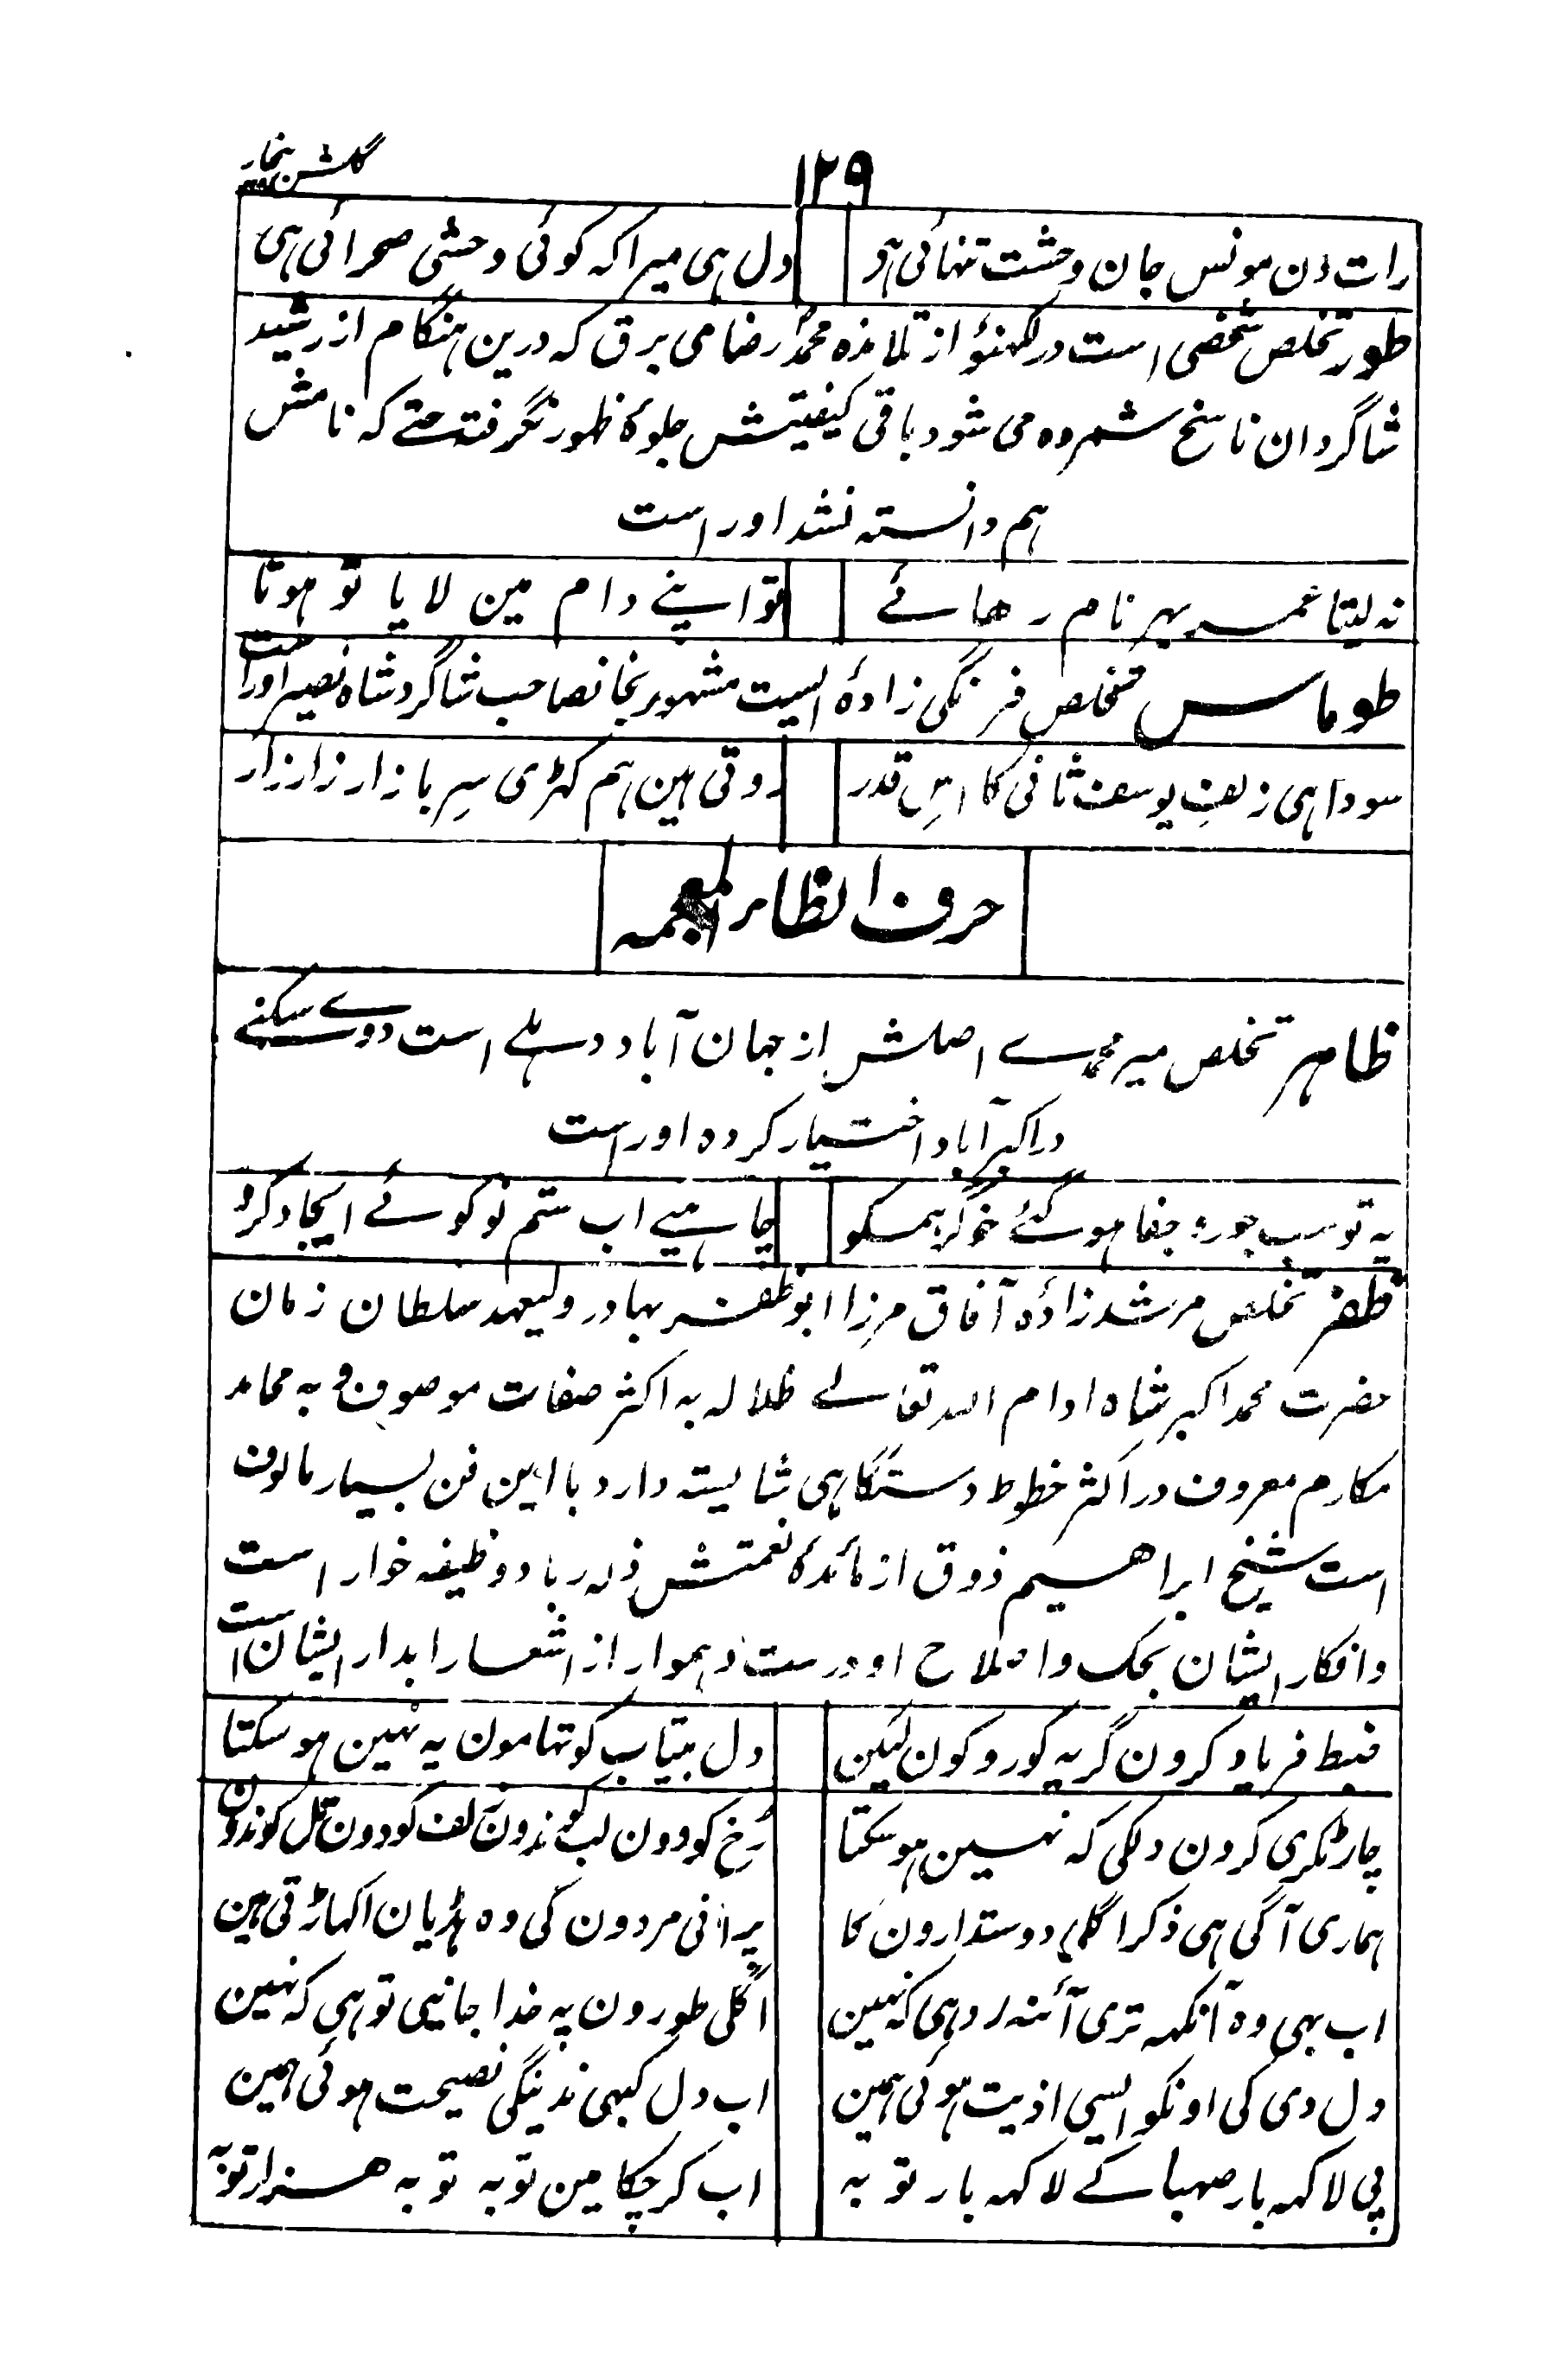 ۱۲۹
گلشن بیخار
رات دن مونس جان وحشت تنہائی ہو دل ہی میرا کہ کوئی وحشی صحرائی ہی
طور تخلص شخصی است در لکہنؤ از تلامذہ محمد رضا می برق کہ درین ہنگام از رشید
شاگردان ناسخ شمردہ می شود باقی کیفیتش جلوۂ ظہور نگرفتہ حتے کہ نامش
ہم دانستہ نشد اوراست
نہ لیتا عمر بہر نام رہائے تو اپنے دام مین لایا تو ہوتا
طوماس تخلص فرنگی زادۂ ایست مشہور بخانصاحب شاگرد شاہ نصیر اوراست
سودا ہی زلفِ یوسف ثانی کا اِس قدر روتی ہین ہم کہڑی سرِ بازار زار زار
حرف الظاء المعجمہ
ظاہر تخلص میر محمدے اصلش از جہان آباد دہلے است دوے سکنے
در اکبرآباد اختیار کردہ اوراست
یہ تو سب جور و جفا ہوگئے خوگر ہمکو چاہیے اب ستم نو کوئے ایجاد کرو
ظفر تخلص مرشدزادۂ آفاق مرزا ابوظفر بہادر ولیعہد سلطان زمان
حضرت محمد اکبر شاہ ادام اللہ تعالے ظلالہ بہ اکثر صفات موصوف و بہ محامد
مکارم معروف در اکثر خطوط دستگاہی شایستہ دارد با این فن بسیار مالوف
است شیخ ابراہیم ذوق از مائدۂ نعمتش ذلہ ربا و وظیفہ خوار است
و افکار ایشان بحک و اصلاح او درست و ہموار از اشعار ابدار ایشان است
ضبط فریاد کرون گریہ کو روکون لیکن دل بیتاب کو تہامون یہ نہین ہو سکتا
چار ٹکری کرون دلکی کہ نہین ہو سکتا رُخ کو دون لب کو ندون زلف کو دون تل کو ندون
ہماری آگی ہی ذکر اگلی دوستدارون کا پرانی مردون کی وہ ہڈیان اکہاڑتی ہین
اب بہی وہ آنکہہ تری آئنہ رو ہی کہ نہین اگلی طورون پہ خدا جانیی تو ہی کہ نہین
دل دی کی اونکو ایسی اذیت ہوئی ہمین اب دل کبہی ندینگی نصیحت ہوئی ہمین
پی لاکہہ بار صہبا کے لاکہہ بار توبہ اب کر چکا مین توبہ توبہ ہزار توبہ